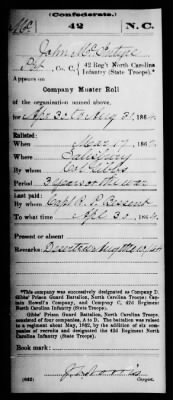 (Confederate.)
Mc 42 N.C.
John McIntyre
Pvt, Co. C, 42 Reg't North Carolina
Infantry (State Troops).*
Appears on
Company Muster Roll
of the organization named above,
for Apr 30 to Aug 31, 1864.
Enlisted:
When Mar 17, 186
Where Salisbury
By whom Gibbs
Period 3 years or the war
Last paid:
By whom Capt
To what time Apl 30, 1864.
Present or absent
Remarks: Deserted Aug
*This company was successively designated as Company D,
Gibbs' Prison Guard Battalion, North Carolina Troops; Cap-
tain Howell's Company, and Company C, 42d Regiment
North Carolina Infantry (State Troops).
Gibbs' Prison Guard Battalion, North Carolina Troops,
consisted of four companies, A to D. The battalion was raised
to a regiment about May, 1862, by the addition of six com-
panies of recruits and designated the 42d Regiment North
Carolina Infantry (State Troops).
Book mark:
(642)
Copyist.